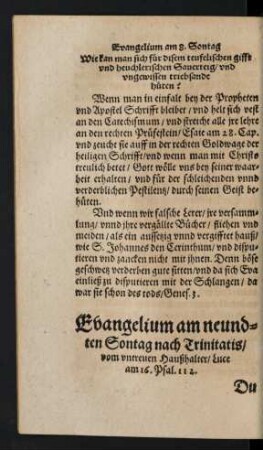 Evangelium am 8. Sontag
Wie kan man sich für disem teufelischen gifft
vnd heuchlerischen Sauerteig/ vnd
vngewissen triebsande
hüten?
Wenn man in einfalt bey der Propheten
vnd Apostel Schrifft bleibet/ vnd helt sich vest
an den Catechismum/ vnd streicht alle jre lehre
an den rechten Prüfestein/ Esaie am 28. Cap.
vnd zeucht sie auff in der rechten Goldwage der
heiligen Schrifft/vnd wenn man mit Christo
trewlich betet/ Gott wölle vns bey seiner war-
heit erhalten/ vnd für der schleichenden vnnd
verderblichen Pestilentz/ durch seinen Geist be-
hüten.
Vnd wenn wir falsche Lerer/ jre versamm-
lung/ vnnd jhre vergällte Bücher/ fliehen vnd
meiden/ als ein aussetzig vnnd vergifftet hauß/
wie S. Johannes den Cerinthum/ vnd dispu-
tieren vnd zancken nicht mit jhnen. Denn böse
geschwetz verderben gute sitten/vnd da sich Eua
einließ zu disputieren mit der Schlangen/ da
war sie schon des tods/Genes. 3.
Evangelium am neund-
ten Sontag nach Trinitatis/
vom vntreuen Haußhalter/ Luce
am 16. Psal. 112.
Du